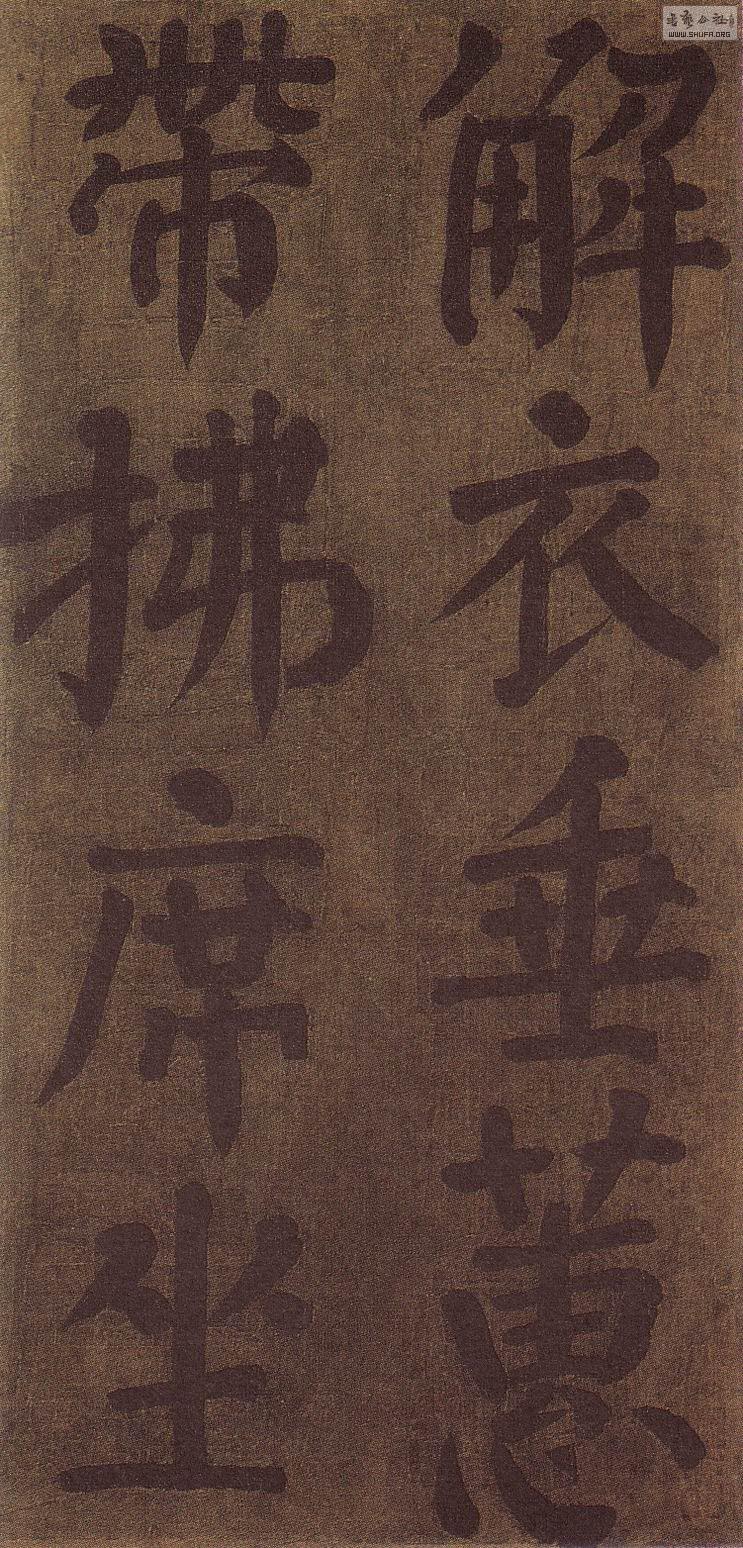 解衣垂蕙
帶拂席坐
书艺公社
WWW.SHUFA.ORG